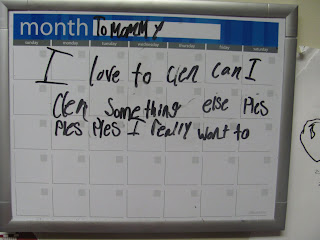 month To MOMMY
sunday monday tuesday wednesday thursday friday saturday
I love to clen can I
clen something else Ples
Ples Ples I really want to